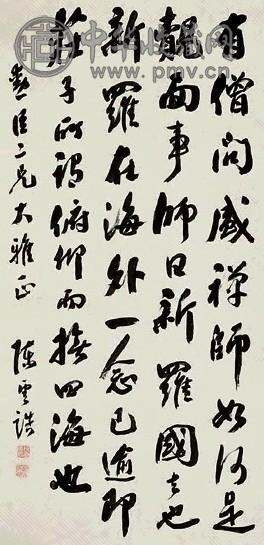 中华收藏网
www.pmv.cn
有僧問盛禪師如何是
覿面事師曰新羅國去也
新羅在海外一念已逾即
莊子所謂俯仰而撫四海也
臣二兄大雅正
陳雲誥